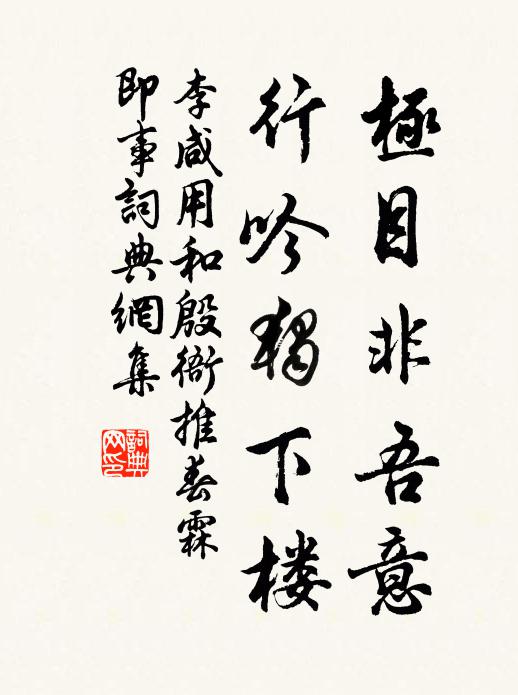 極目非吾意
行吟獨下楼
李咸用和殷衙推春霖
即事詞典網集
詞典网印